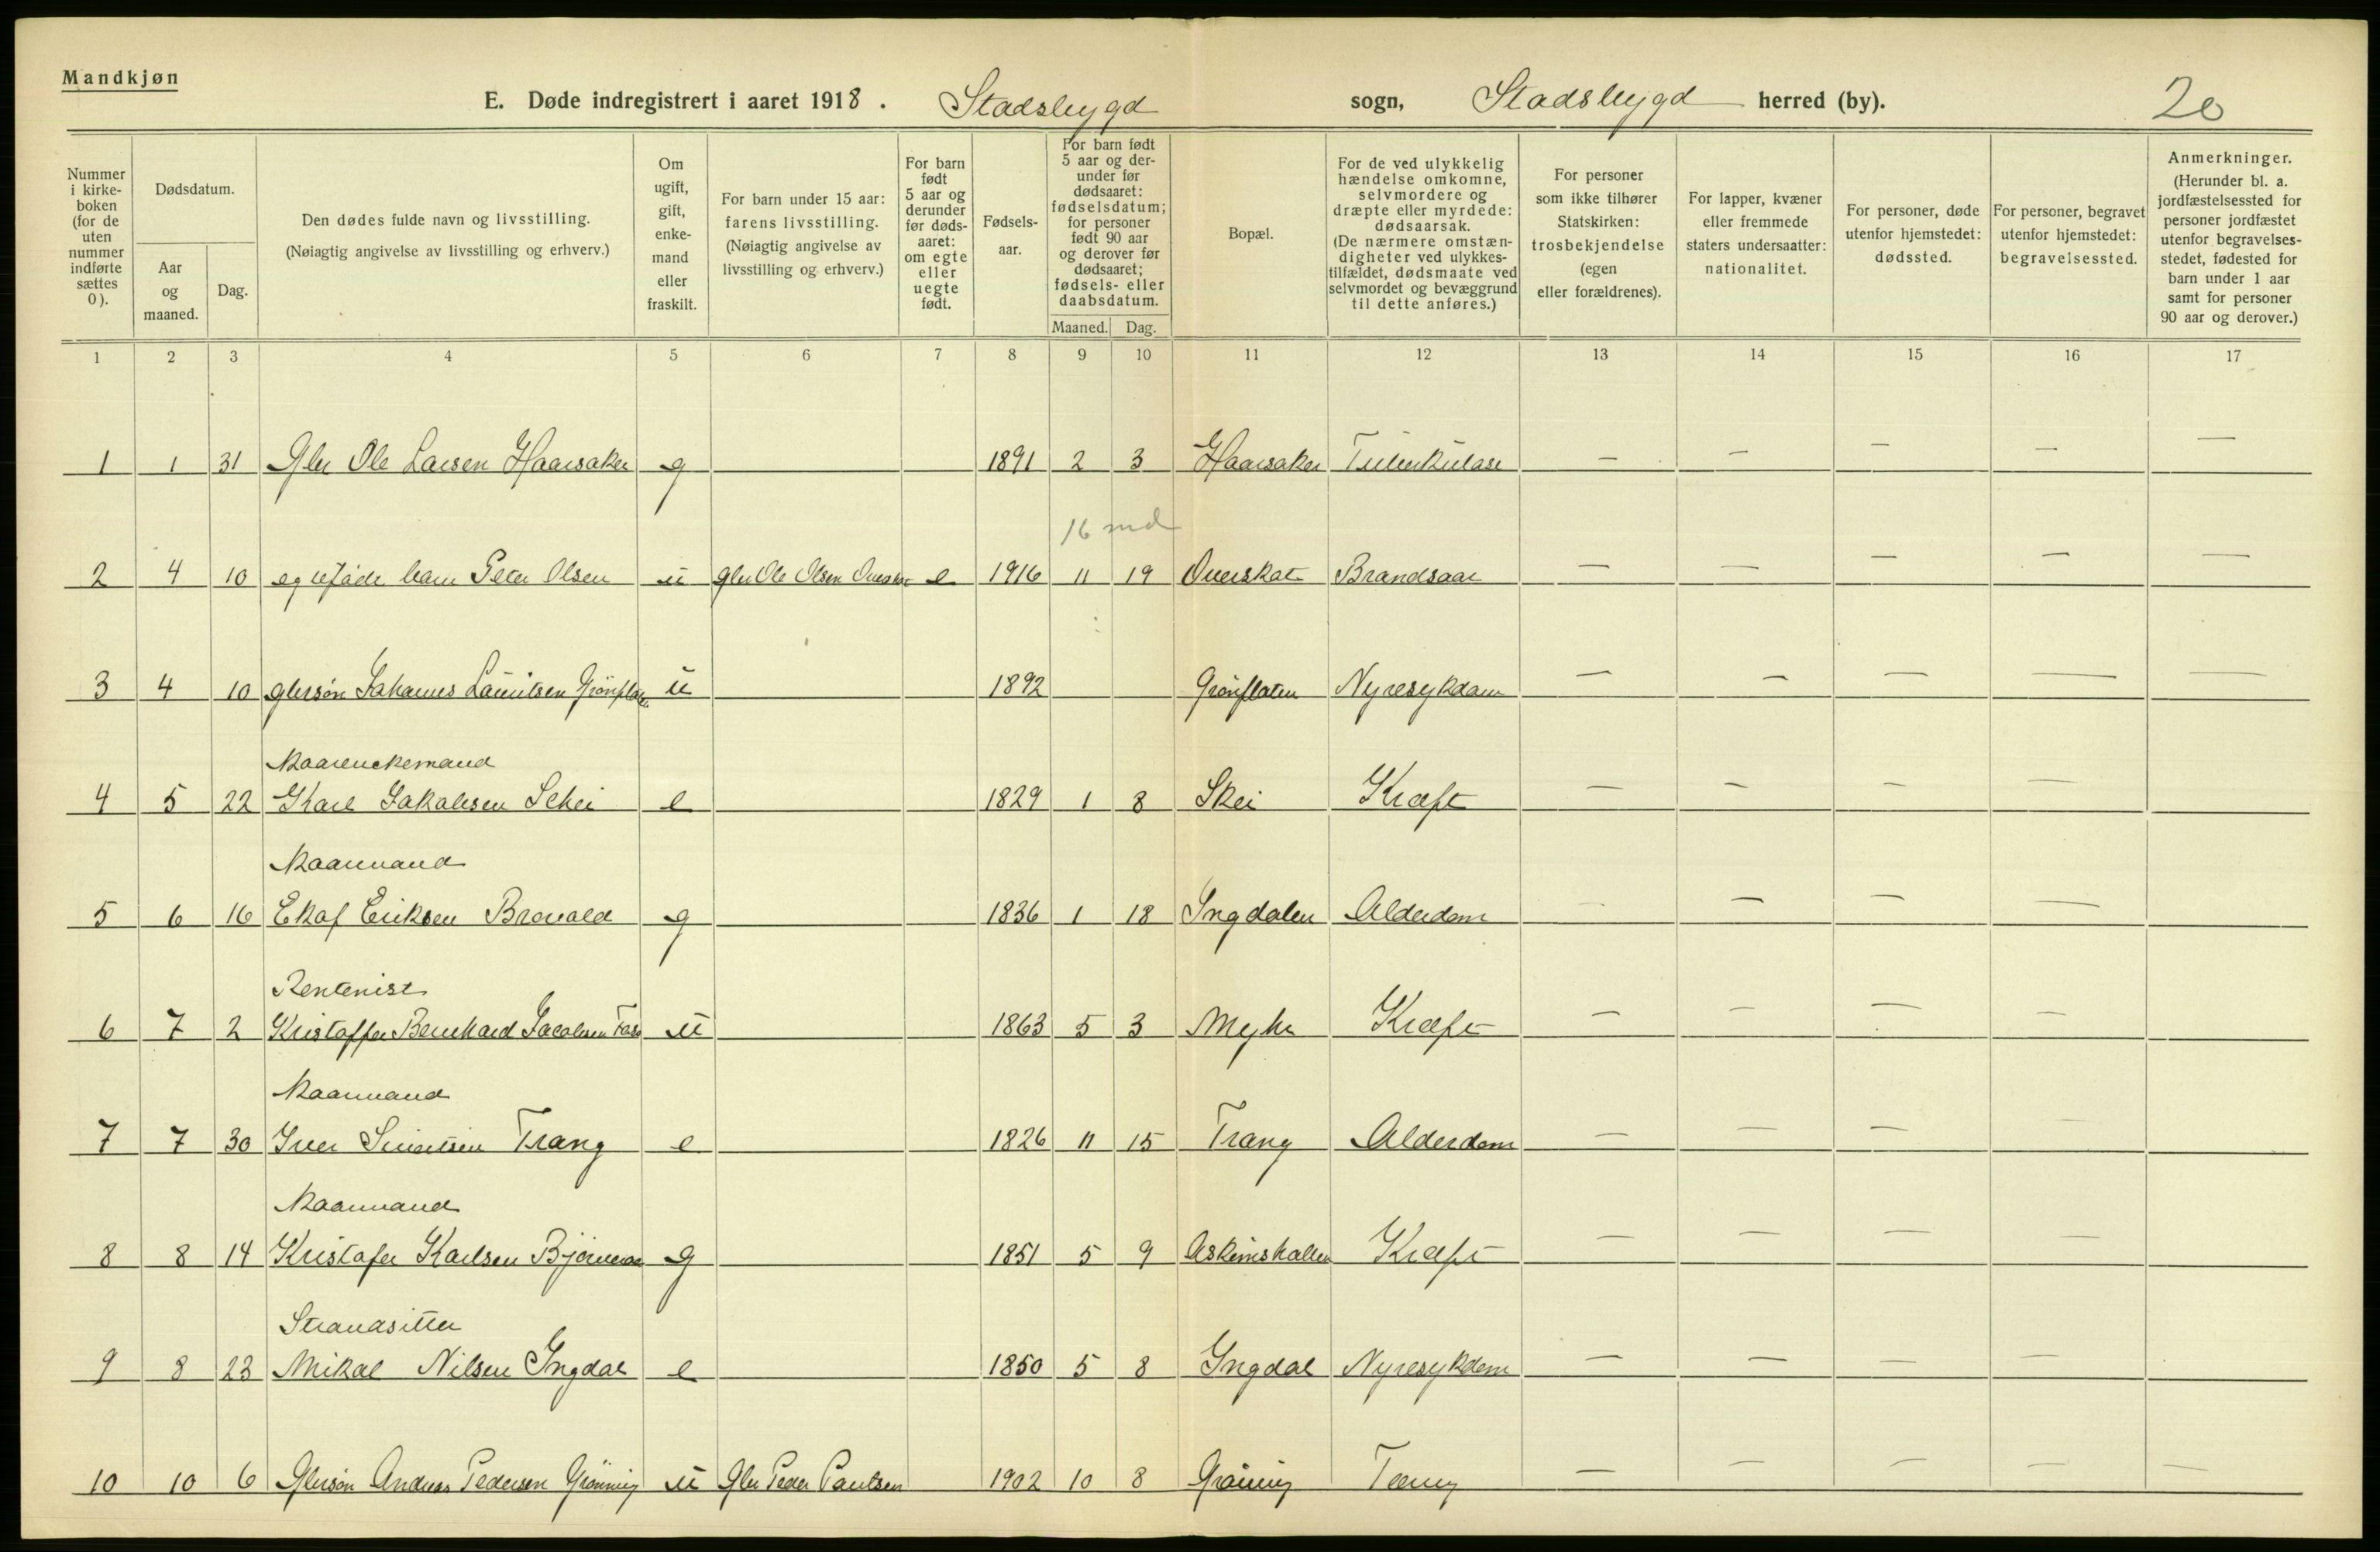 Mandkjøn
E. Døde indregistrert i aaret 1918. Stadsbygd sogn, Stadsbygd herred (by). 20
Nummer i kirkeboken (for de uten nummer indførte sættes 0).
Dødsdatum.
Aar og maaned.
Dag.
Den dødes fulde navn og livsstilling.
(Nøiagtig angivelse av livsstilling og erhverv.)
Om ugift, gift, enkemand eller fraskilt.
For barn under 15 aar: farens livsstilling.
(Nøiagtig angivelse av livsstilling og erhverv.)
For barn født 5 aar og derunder før dødsaaret: om egte eller uegte født.
Fødselsaar.
For barn født 5 aar og derunder før dødsaaret: fødselsdatum; for personer født 90 aar og derover før dødsaaret; fødsels- eller daabsdatum.
Maaned. Dag.
Bopæl.
For de ved ulykkelig hændelse omkomne, selvmordere og dræpte eller myrdede: dødsaarsak.
(De nærmere omstændigheter ved ulykkestilfældet, dødsmaate ved selvmordet og bevæggrund til dette anføres.)
For personer som ikke tilhører Statskirken: trosbekjendelse (egen eller forældrenes).
For lapper, kvæner eller fremmede staters undersaatter: nationalitet.
For personer, døde utenfor hjemstedet: dødssted.
For personer, begravet utenfor hjemstedet: begravelsessted.
Anmerkninger.
(Herunder bl. a. jordfæstelsessted for personer jordfæstet utenfor begravelsesstedet, fødested for barn under 1 aar samt for personer 90 aar og derover.)
1 2 3 4 5 6 7 8 9 10 11 12 13 14 15 16 17
1 1 31 Gbr Ole Larsen Haarsaker g 1891 2 3 Haarsaker Tuberkulose — — — — —
16 md
2 4 10 barn Peter Olsen u gbr Ole Olsen e 1916 11 19 Overskot Brandsaar — — — — —
3 4 10 gbrsøn Johannes Lauritsen Grönflaten u 1892 Grönflaten Nyresykdom — — — — —
Kaarenkemand
4 5 22 Karl Jakobsen Schei e 1829 1 8 Skei Kræft — — — — —
Kaarmand
5 6 16 Eriksen Brovold g 1836 1 18 Ingdalen Alderdom — — — —
Rentenist
6 7 2 Kristoffer Bernhard Jacobsen u 1863 5 3 Myhr Kræft — — — —
Kaarmand
7 7 30 Iver Sivertsen Trang e 1826 11 15 Trang Alderdom — — — —
Kaarmand
8 8 14 Kristofer Karlsen g 1851 5 9 Kræft — — — —
Strandsitter
9 8 23 Mikal Nilsen Ingdal e 1850 5 8 Ingdal Nyresykdom — — — —
10 10 6 Gbrsøn Andreas Pedersen Grönning u Gbr Peder Paulsen 1902 10 8 Gröning Tæring — — — — —